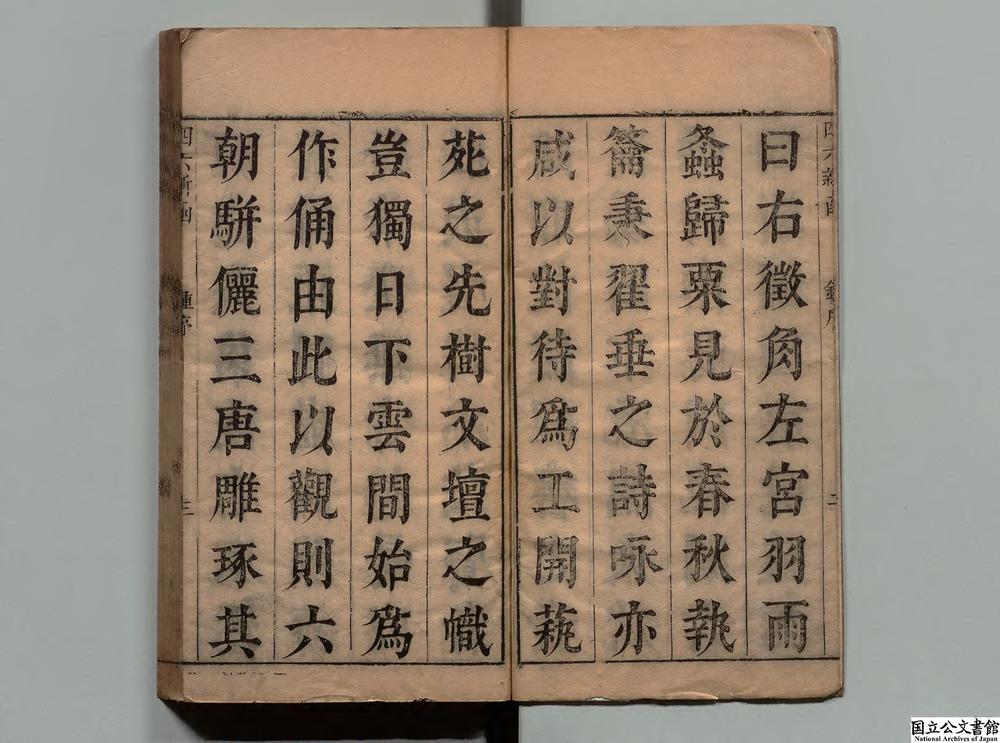 曰右徵角左宮羽雨
螽歸粟見於春秋執
籥秉翟垂之詩咏亦
咸以對待爲工開蓺
苑之先樹文壇之幟
豈獨日下雲間始爲
作俑由此以觀則六
朝駢儷三唐雕琢其
四六新函
鍾序
二
四六新函
鍾序
三
国立公文書館
National Archives of Japan